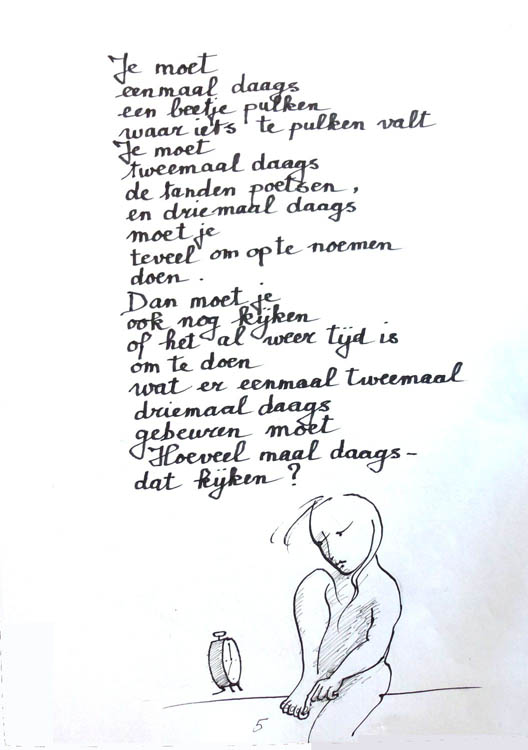 Je moet
eenmaal daags
een beetje pulken
waar iets te pulken valt
Je moet
tweemaal daags
de tanden poetsen,
en driemaal daags
moet je
teveel om op te noemen
doen.
Dan moet je
ook nog kijken
of het al weer tijd is
om te doen
wat er eenmaal tweemaal
driemaal daags
gebeuren moet
Hoeveel maal daags-
dat kijken?
5